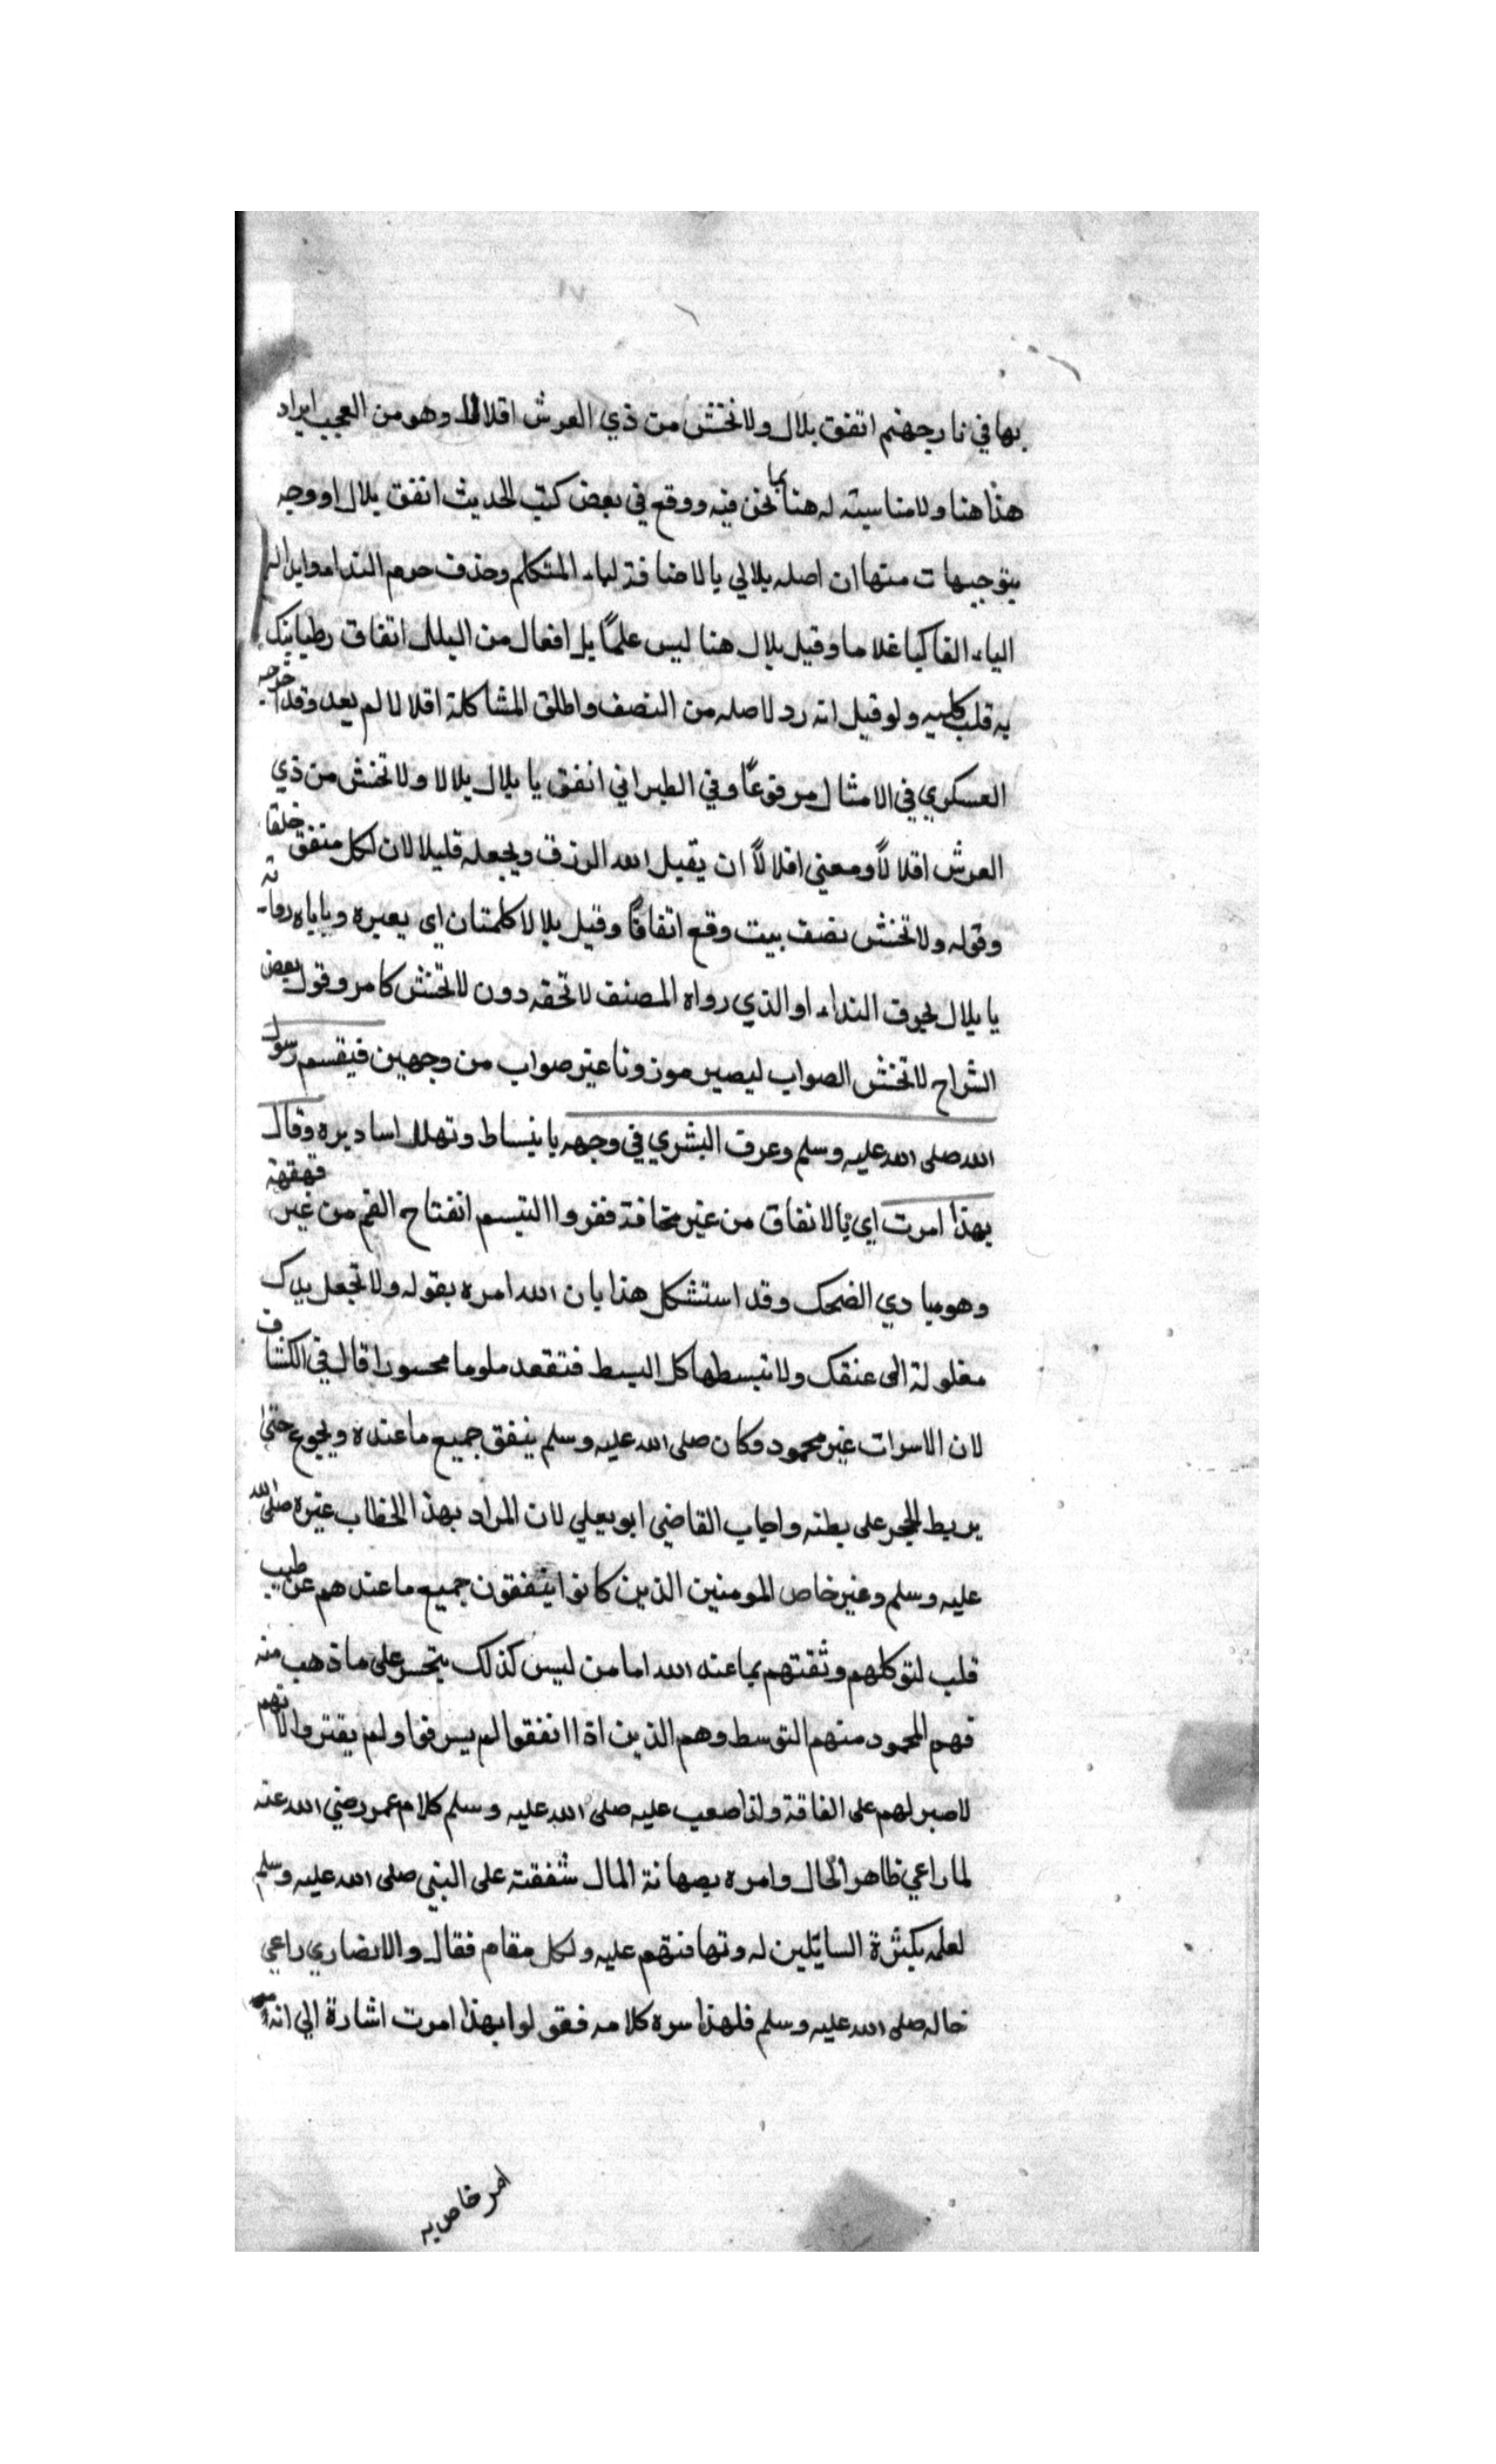 بها في نار جهنم انفق بلال ولا تخش من ذي العرش اقلالا وهو من العجب ايراد
هذا هنا ولا مناسبته له هنا بما نحن فيه ووقع في بعض كتب الحديث انفق بلال او وجه
بتوجيهات منها ان اصله بلالي بالاضافة لياء المتكلم وحذف حرف الندا وابدال
الياء الفا كيا غلاما وقيل بلال هنا ليس علمًا بل افعال من البلل اتفاق
به قلب كلبيه ولو قيل انه رد لاصله من النصف واطلق المشاكلة اقلالا لم يعد وقد اخرجه
العسكري في الامثال مرفوعًا وفي الطبراني انفق يا بلال بلالا ولا تخش من ذي
العرش اقلالًا ومعني اقلالًا ان يقيل الله الرزق ويجعله قليلا لان لكل منفق خلفا
وقوله ولا تخش نصف بيت وقع اتفاقًا وقيل بلالا كلمتان اي يعيره وياباه رواية
يا بلال بحرف النداء او الذي رواه المصنف لا تحقه دون لا تخش كامر وقول بعض
الشراح لا تخش الصواب ليصير موزونا غير صواب من وجهين فتبسم رسول
الله صلى الله عليه وسلم وعرف البشري في وجهه بانبساط وتهلل اساريره وقال
بهذا امرت اي بالانفاق من غير مخافة فقر واالتبسم انفتاح الفم من غير قهقهة
وهو مبادي الضحك وقد استشكل هذا بان الله امره بقوله ولا تجعل يدك
مغلولة الى عنقك ولا تبسطها كل البسط فتقعد ملوما محسورا قال في الكشاف
لان الاسراف غير محمود وكان صلى الله عليه وسلم ينفق جميع ما عنده ويجوع حتى
يربط الحجر على بطنه واجاب القاضي ابو يعلي لان المراد بهذا الخطاب غيره صلى الله
عليه وسلم وغير خاص المومنين الذين كانوا ينفقون جميع ما عندهم عن طيب
قلب لتوكلهم وثقتهم بما عند الله اما من ليس كذلك يتحسر على ما ذهب منه
فهم المحمود منهم التوسط وهم الذين اذا انفقوا لم يسرفوا ولم يقتروا لانهم
لا صبر لهم على الفاقة ولذا صعب عليه صلى الله عليه وسلم كلام عمر رضي الله عنه
لما راعي ظاهر الحال وامره بصيانة المال شفقة على النبي صلى الله عليه وسلم
لعلمه بكثرة السايلين له وتهافتهم عليه ولكل مقام فقال والانصاري راعي
حاله صلى الله عليه وسلم فلهذا سره كلامه فقوله بهذا امرت اشارة الي انه
امر خاص به